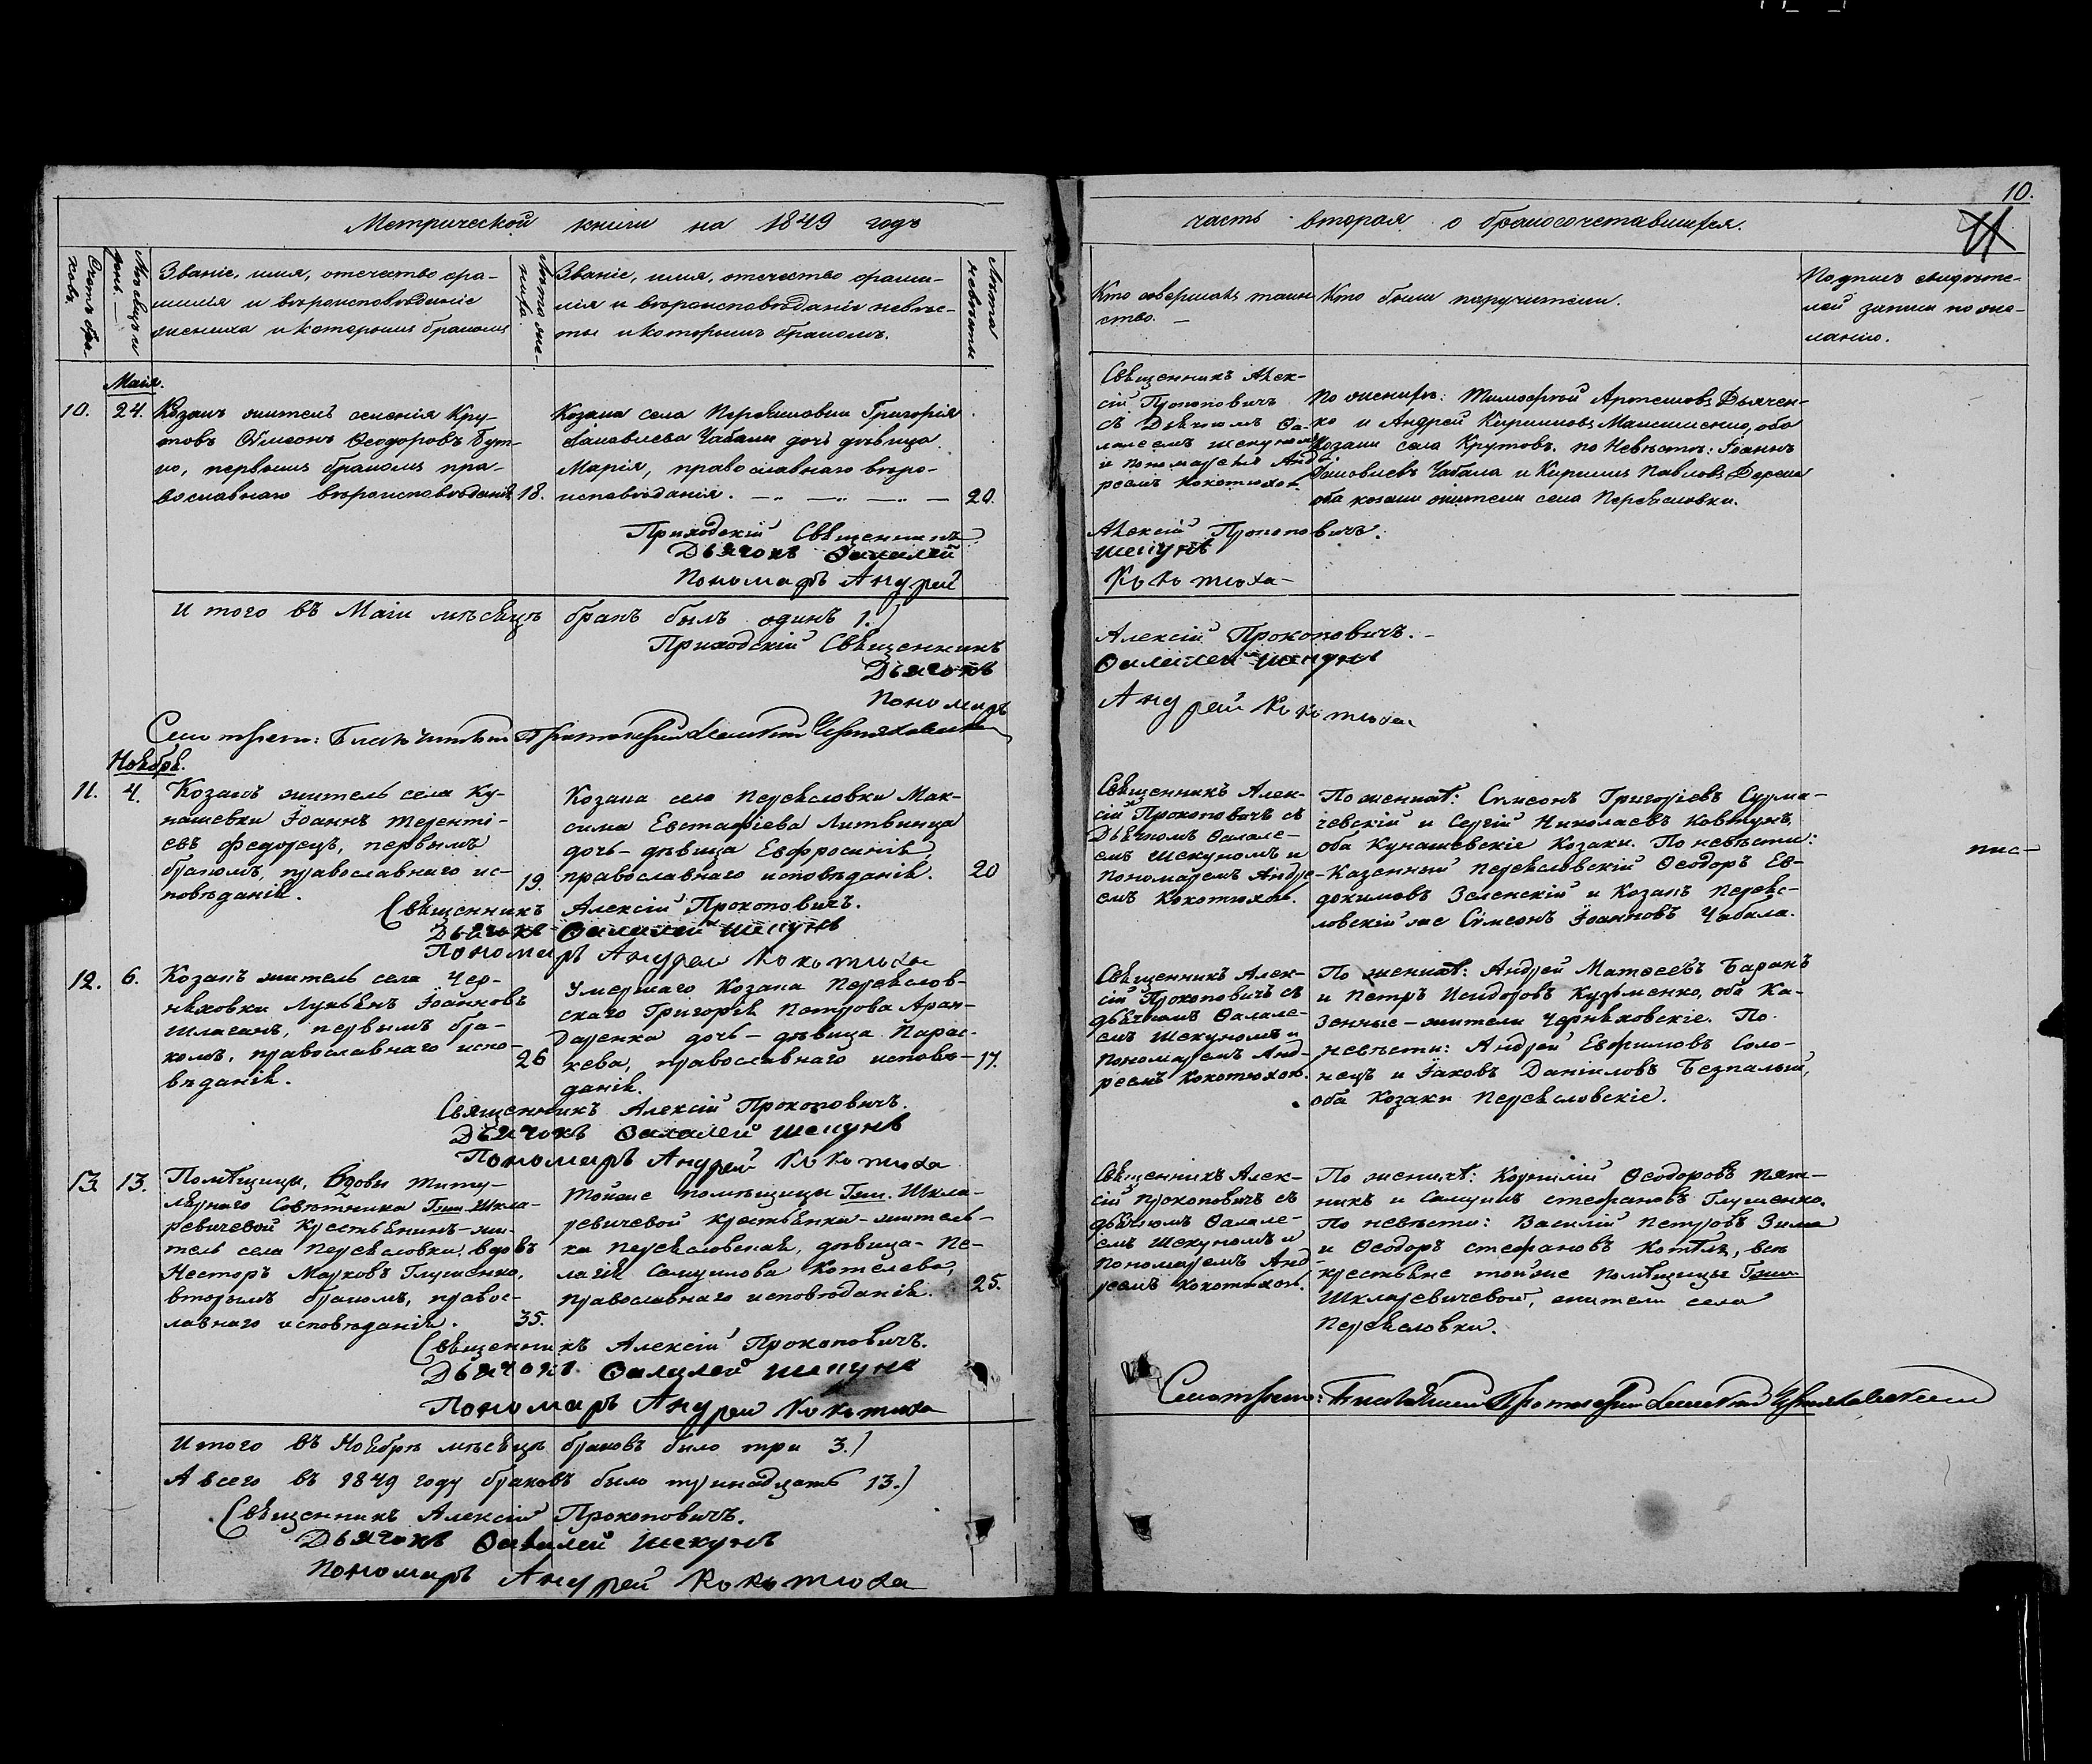 10.
Метрической книги на 1849 годъ
часть вторая о бракосочетавшихся.
Счетъ бра-
ковъ.
Мѣсяцъ и
день.
Званіе, имя, отечество фа-
милія и вѣроисповѣданіе
жениха и которымъ бракомъ
Лѣта же-
ниха.
Званіе, имя, отечество фами-
лія и вѣроисповѣданіе невѣс-
ты и которымъ бракомъ.
Лѣта
невѣсты
Кто совершалъ таин-
ство.
Кто были поручители.
Подпись свидѣте-
лей записи по же-
ланію.
Маія.
10. 24.
Козакъ житель селенія Кру-
товъ Сѵмеонъ Ѳеодоровъ
, первымъ бракомъ пра-
вославнаго вѣроисповѣданія 18.
Козака села Переясловки Григорія
Чабали дочь дѣвица
Марія, православнаго вѣро-
исповѣданія. 20.
Священникъ Алек-
сій Прокоповичъ
съ Дьячкомъ Ѳа-
лалеемъ Шекуномъ
и пономаремъ Анд-
реемъ Кокотюхою.
По женихѣ: Тимофѣй Артемовъ Дьячен-
ко и Андрей Кириловъ Максименко, оба
козаки села Крутовъ. по Невѣстѣ: Іоаннъ
Чабала и Кириллъ Павловъ
оба козаки жители села Переясловки.
Приходскій Священникъ Алексій Прокоповичъ.
Дьячокъ Ѳалалей Шекунъ
Пономарь Андрей Кокотюха
И того въ Маіи мѣсяцѣ бракъ былъ одинъ 1.)
Приходскій Священникъ Алексій Прокоповичъ.
Дьячокъ Ѳалалей Шекунъ
Пономарь Андрей Кокотюха
Ноября.
11. 4.
Козакъ житель села Ку-
нашевки Іоаннъ Теренті-
евъ Федорецъ, первымъ
бракомъ, православнаго ис-
повѣданія. 19.
Козака села Переясловки Мак-
сима Евстафіева Литвинца
дочь - дѣвица Евфросинія,
православнаго исповѣданія. 20
Священникъ Алек-
сій Прокоповичъ съ
Дьячкомъ Ѳалале-
емъ Шекуномъ и
Пономаремъ Андре-
емъ Кокотюхою.
По женихѣ: Сѵмеонъ Григоріевъ Сурма-
чевскій и Сергій Николаевъ Ковтунъ,
оба Кунашевскіе Козаки. По невѣстѣ:
Казенный Переясловскій Ѳеодоръ Ев-
докимовъ Зеленскій и Козакъ Переяс-
ловскій же Сѵмеонъ Іоанновъ Чабала.
Священникъ Алексій Прокоповичъ.
Дьячокъ Ѳалалей Шекунъ
Пономарь Андрей Кокотюха
12. 6.
Козакъ житель села Чер-
няховки Лукьянъ Іоанновъ
Шлаганъ, первымъ бра-
комъ, православнаго испо-
вѣданія. 26
Умершаго Козака Переяслов-
скаго Григорія Петрова Аран-
даренка дочь - дѣвица Парас-
кева, православнаго исповѣ-
данія. 17.
Священникъ Алек-
сій Прокоповичъ съ
дьячкомъ Ѳалале-
емъ Шекуномъ и
Пономаремъ Анд-
реемъ Кокотюхою.
По женихѣ: Андрей Матѳеевъ Баранъ
и Петръ Исидоровъ Кузьменко, оба Ка-
зенные - жители Черняховскіе. По
невѣстѣ: Андрей Евфимовъ Соло-
нецъ и Іаковъ Даніиловъ Безпалый,
оба Козаки Переясловскіе.
Священникъ Алексій Прокоповичъ.
Дьячокъ Ѳалалей Шекунъ
Пономарь Андрей Кокотюха
13. 13.
Помѣщицы, Вдовы Титу-
лярнаго Совѣтника Гжи Шкля-
ревичевой Крестьянинъ - жи-
тель села Переясловки, вдовъ
Несторъ Марковъ Глущенко,
вторымъ бракомъ, правос-
лавнаго исповѣданія. 35.
Тойже помѣщицы Гжи Шкля-
ревичевой крестьянка - житель-
ка Переясловская, дѣвица - Пе-
лагія Самуилова Котелева,
православнаго исповѣданія. 25.
Священникъ Алек-
сій Прокоповичъ съ
дьячкомъ Ѳалале-
емъ Шекуномъ и
Пономаремъ Анд-
реемъ Кокотюхою.
По женихѣ: Корнилій Ѳеодоровъ Пят-
никъ и Самуилъ Стефановъ Глущенко.
По невѣстѣ: Василій Петровъ Зима
и Ѳеодоръ Стефановъ Котѣля, всѣ
крестьяне тойже Помѣщицы Гжи
Шкляревичевой, жители села
Переясловки.
Священникъ Алексій Прокоповичъ.
Дьячокъ Ѳалалей Шекунъ
Пономарь Андрей Кокотюха
Итого въ Ноябрѣ мѣсяцѣ браковъ было три 3.)
А всего въ 1849 году браковъ было тринадцать 13.)
Священникъ Алексій Прокоповичъ.
Дьячокъ Ѳалалей Шекунъ
Пономарь Андрей Кокотюха